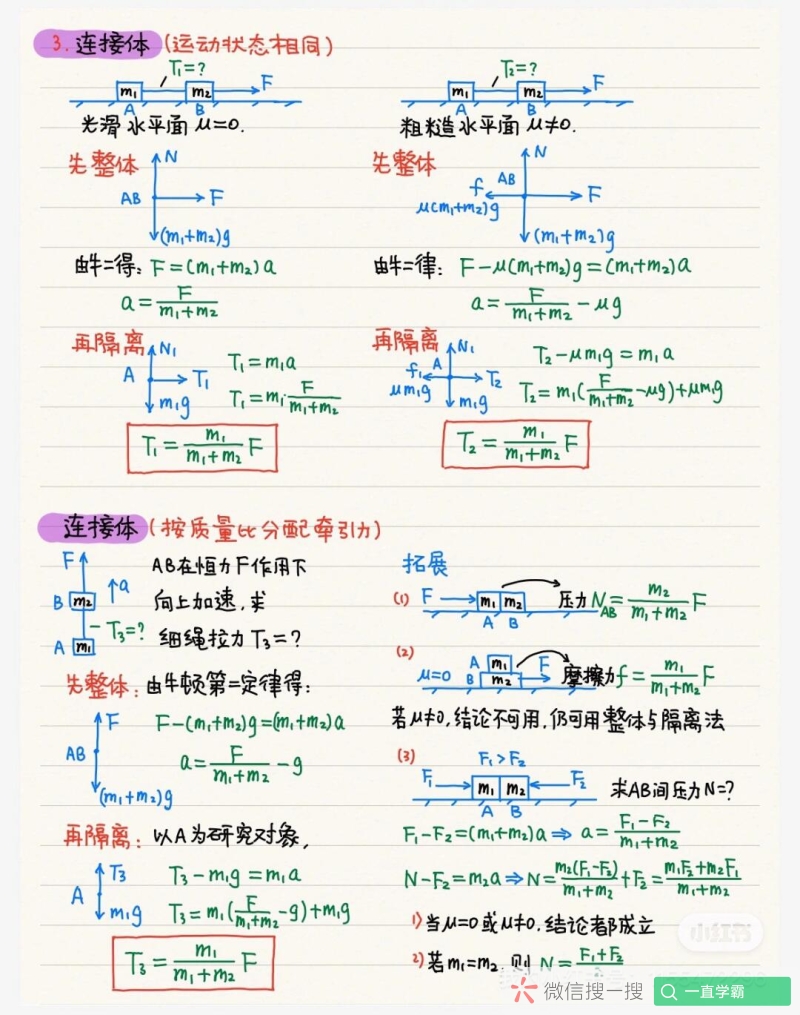 3. 连接体 (运动状态相同)
T₁=?
m₁ m₂ F
A B
光滑水平面 μ=0.
先整体
N
AB F
(m₁+m₂)g
由牛二得: F=(m₁+m₂)a
a=F/(m₁+m₂)
再隔离
N₁
A T₁
m₁g
T₁=m₁a
T₁=m₁·F/(m₁+m₂)
T₁=m₁/(m₁+m₂) F
T₂=?
m₁ m₂ F
A B
粗糙水平面 μ≠0.
先整体
N
f AB F
μ(m₁+m₂)g
(m₁+m₂)g
由牛二律: F-μ(m₁+m₂)g=(m₁+m₂)a
a=F/(m₁+m₂)-μg
再隔离
N₁
f₁ A T₂
μm₁g
m₁g
T₂-μm₁g=m₁a
T₂=m₁(F/(m₁+m₂)-μg)+μm₁g
T₂=m₁/(m₁+m₂) F
连接体 (按质量比分配牵引力)
F
a
B m₂
T₃=?
A m₁
AB在恒力F作用下
向上加速,求
细绳拉力T₃=?
先整体: 由牛顿第二定律得:
F
AB
(m₁+m₂)g
F-(m₁+m₂)g=(m₁+m₂)a
a=F/(m₁+m₂)-g
再隔离: 以A为研究对象,
T₃
A
m₁g
T₃-m₁g=m₁a
T₃=m₁(F/(m₁+m₂)-g)+m₁g
T₃=m₁/(m₁+m₂) F
拓展
(1) F m₁ m₂ 压力N_AB=m₂/(m₁+m₂) F
A B
(2)
μ=0 A m₁ F 摩擦力f=m₁/(m₁+m₂) F
B m₂
若μ≠0,结论不可用,仍可用整体与隔离法
(3) F₁>F₂
F₁ m₁ m₂ F₂ 求AB间压力N=?
A B
F₁-F₂=(m₁+m₂)a⇒a=(F₁-F₂)/(m₁+m₂)
N-F₂=m₂a⇒N=m₂(F₁-F₂)/(m₁+m₂)+F₂=(m₁F₂+m₂F₁)/(m₁+m₂)
1)当μ=0或μ≠0,结论都成立
2)若m₁=m₂,则N=(F₁+F₂)/2
小红书
微信搜一搜 一直学霸